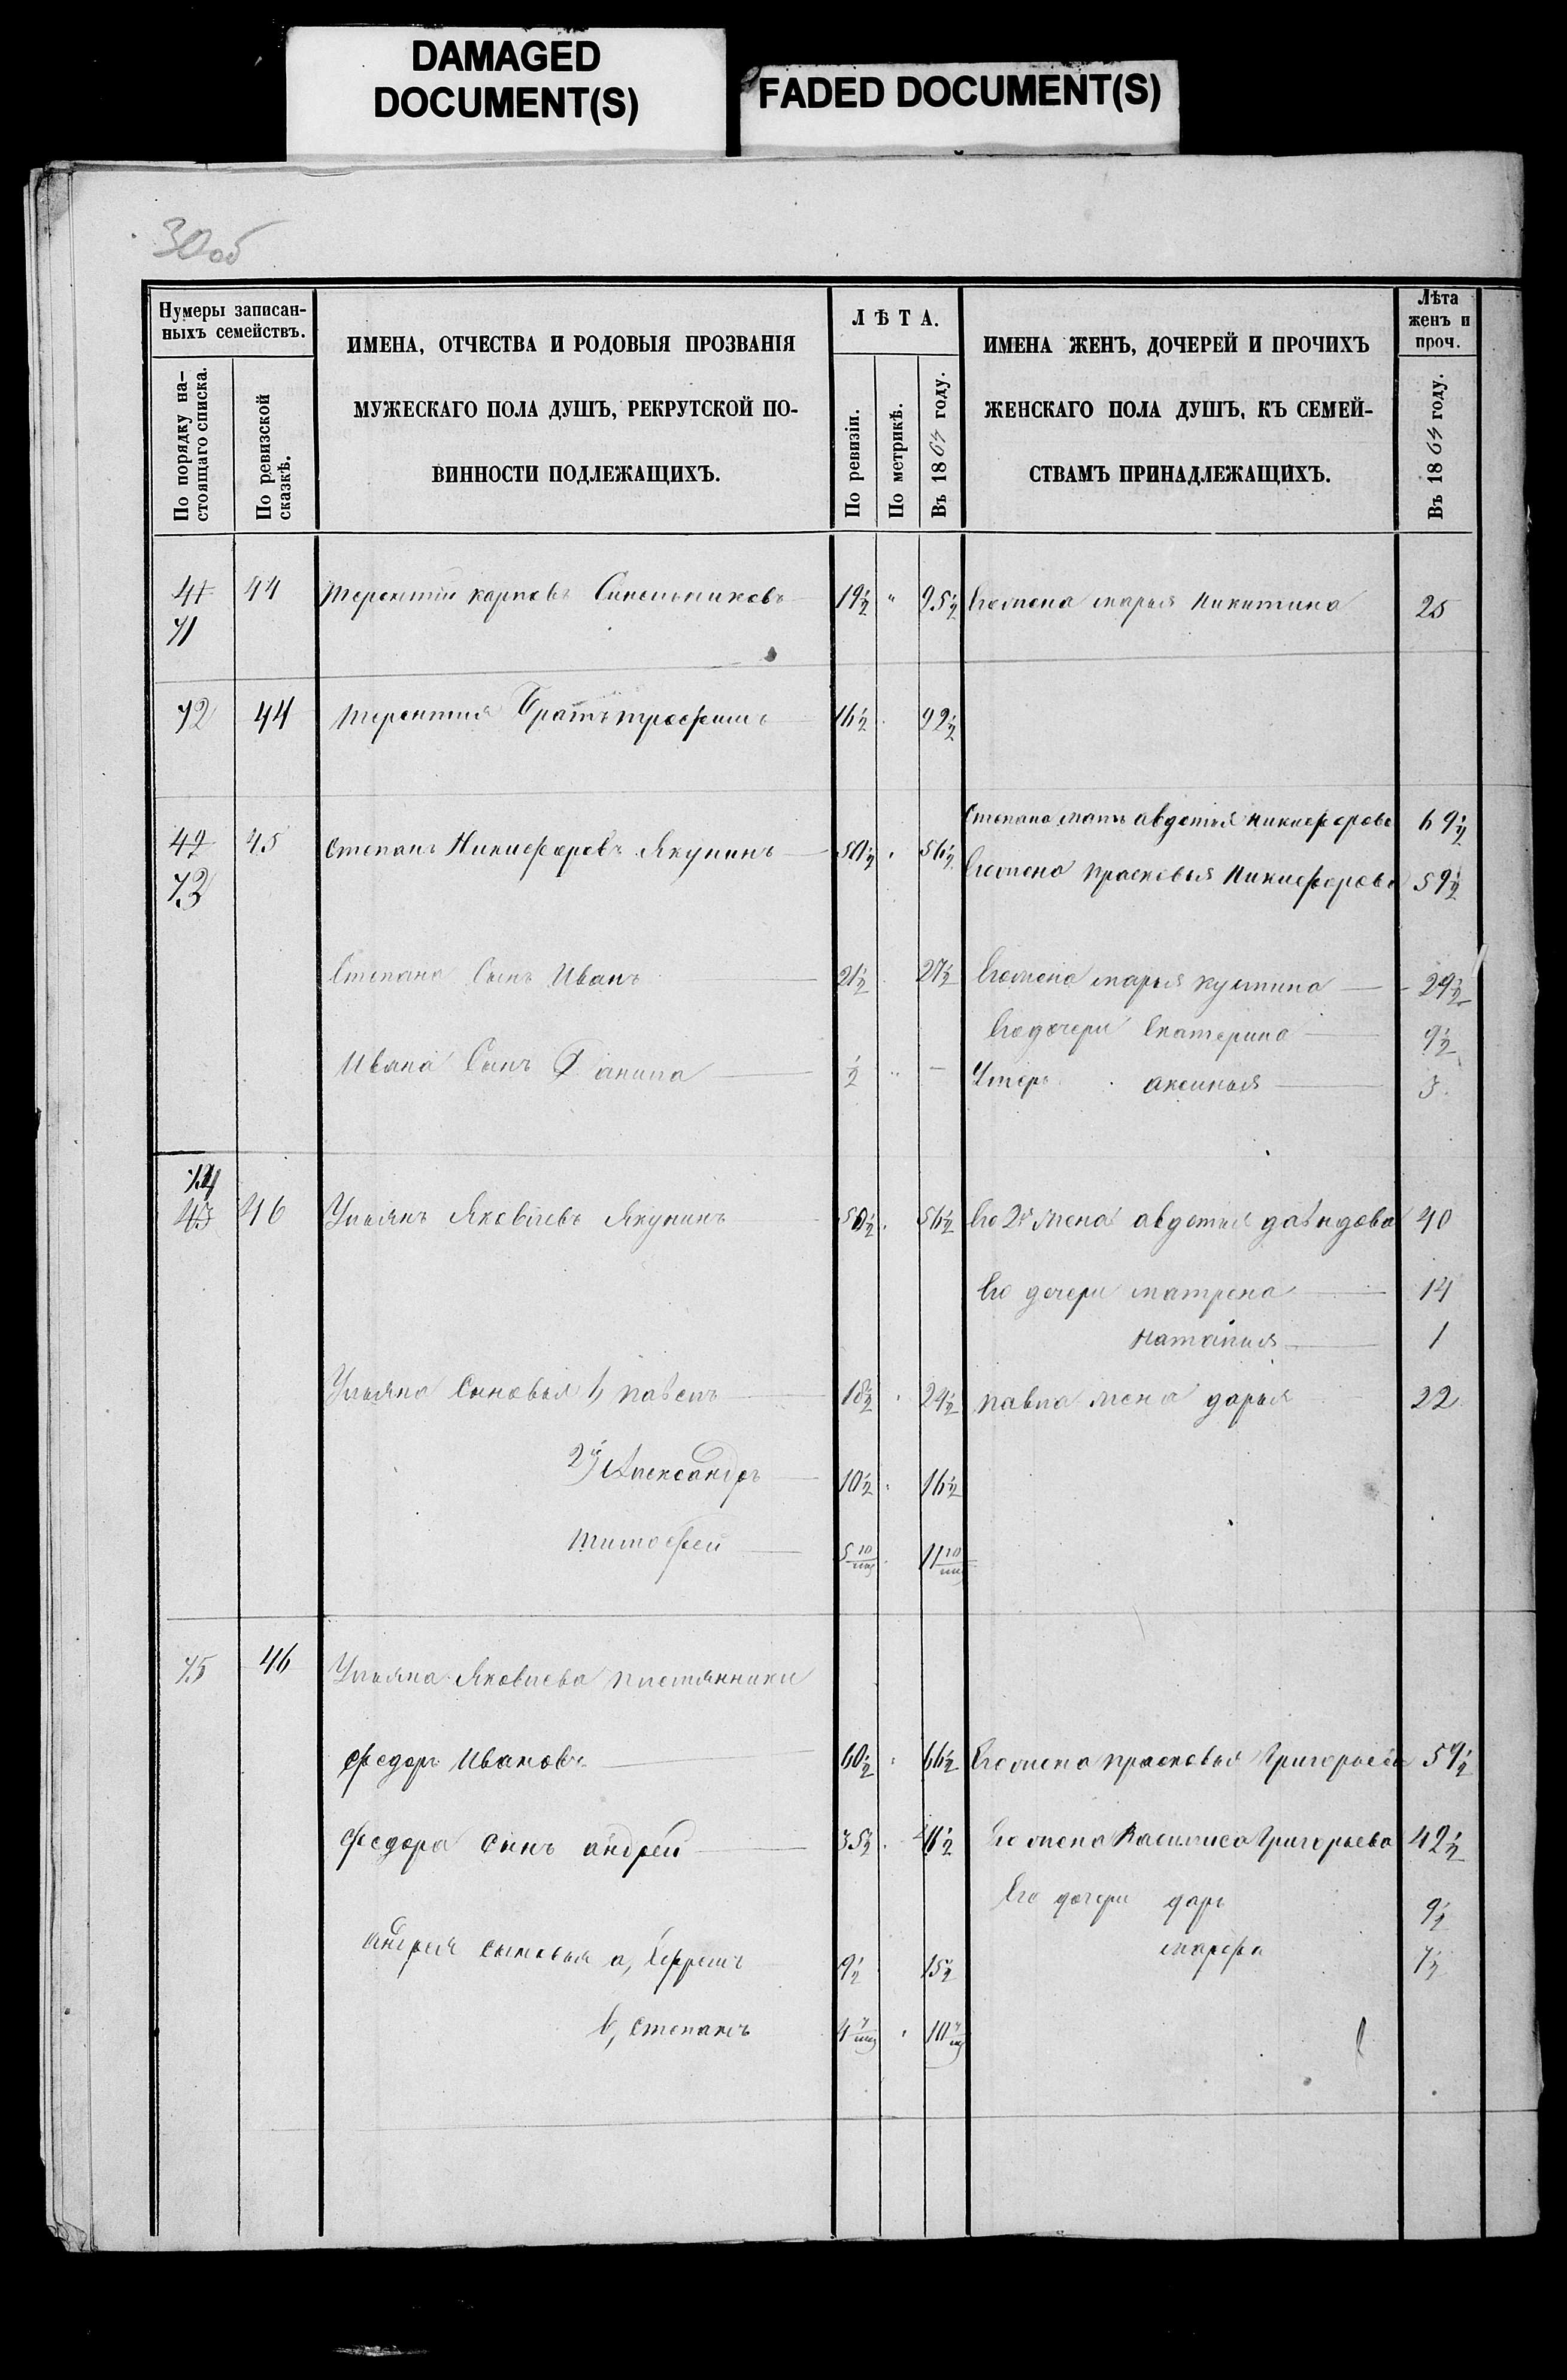 DAMAGED
DOCUMENT(S)
FADED DOCUMENT(S)
30об
Нумеры записан-
ныхъ семействъ.
По порядку на-
стоящаго списка.
По ревизской
сказкѣ.
ИМЕНА, ОТЧЕСТВА И РОДОВЫЯ ПРОЗВАНІЯ
МУЖЕСКАГО ПОЛА ДУШЪ, РЕКРУТСКОЙ ПО-
ВИННОСТИ ПОДЛЕЖАЩИХЪ.
ЛѢТА.
По ревизіи.
По метрикѣ.
Въ 1864 году.
ИМЕНА ЖЕНЪ, ДОЧЕРЕЙ И ПРОЧИХЪ
ЖЕНСКАГО ПОЛА ДУШЪ, КЪ СЕМЕЙ-
СТВАМЪ ПРИНАДЛЕЖАЩИХЪ.
Лѣта
женъ и
проч.
Въ 1864 году.
41 44 терентій карповъ Синельниковъ 19½ " 25½ Его жена марья Никитина 25
71
72 44 терентия Братъ трофимъ 16½ 22½
Степана мать авдотья никифорова 69½
42 45 степанъ Никифоровъ Якунинъ 50½ 56½
73
Его жена прасковья Никифорова 59½
Степана Сынъ Иванъ 21½ 27½ Его жена марья кузмина 29½
Его дочери Екатерина 9½
Ивана Сынъ Данила ½ " - Умеръ
аксинья 3
74
43 46 Ульянъ Яковлевъ Якунинъ 50½ 56½ Его 2я жена авдотья давыдова 40
Его дочери матрена 14
наталия 1
Ульяна Сыновья 1, павелъ 18½ 24½ павла жена дарья 22
2й Александръ 10½ 16½
тимофей 5 10/мц 11 10/мц
75 46 Ульяна Яковлева племянники
федоръ Ивановъ 60½ 66½ Его жена прасковья Григорьева 59½
федора сынъ андрей 35½ 41½ Его жена Василиса Григорьева 42½
Его дочери дарь 9½
марфа 7½
андрея сыновья а, Ефремъ 9½ 15½
в, степанъ